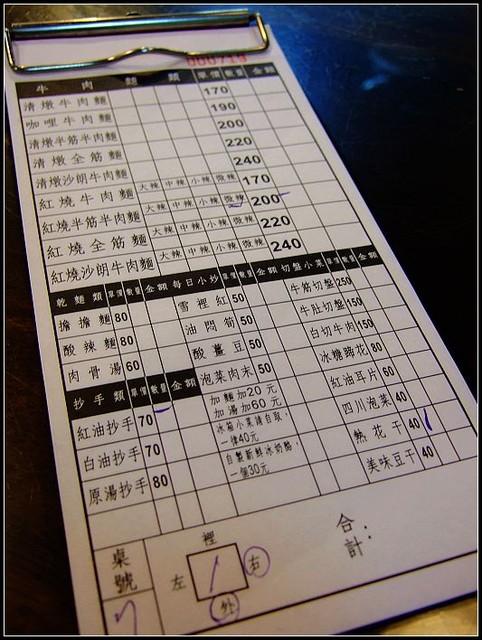 000713
牛肉麵類 單價 數量 金額
清燉牛肉麵 170
咖哩牛肉麵 190
清燉半筋半肉麵 200
清燉全筋麵 220
清燉沙朗牛肉麵 240
紅燒牛肉麵 大辣 中辣 小辣 微辣 170
紅燒半筋半肉麵 大辣 中辣 小辣 微辣 200
紅燒全筋麵 大辣 中辣 小辣 微辣 220
紅燒沙朗牛肉麵 大辣 中辣 小辣 微辣 240
乾麵類 單價 數量 金額
擔擔麵 80
酸辣麵 80
肉骨湯 60
抄手類 單價 數量 金額
紅油抄手 70
白油抄手 70
原湯抄手 80
每日小抄 單價 數量 金額
雪裡紅 50
油悶筍 50
酸薑豆 50
泡菜肉末 50
加麵加20元
加湯加60元
冰箱小菜請自取，
一律40元
自製新鮮冰奶酪，
一個30元
切盤小菜 單價 數量 金額
牛筋切盤 250
牛肚切盤 150
白切牛肉 150
冰糖蹄花 80
紅油耳片 60
四川泡菜 40
熬花干 40
美味豆干 40
合計：
桌號
裡
左 右
外